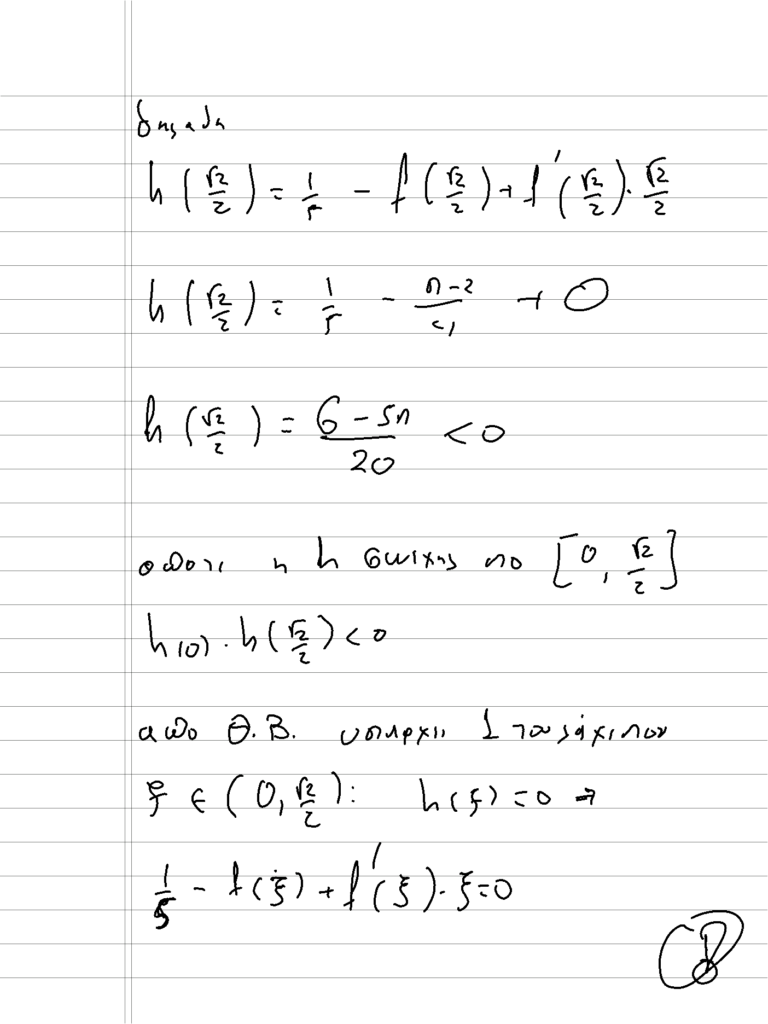 δηλαδή
h(√2/2) = 1/5 - f(√2/2) + f'(√2/2)·√2/2
h(√2/2) = 1/5 - (π-2)/4 + 0
h(√2/2) = (6-5π)/20 < 0
οπότε η h συνεχής στο [0, √2/2]
h(0)·h(√2/2) < 0
απο Θ.Β. υπαρχει 1 τουλάχιστον
ξ ∈ (0, √2/2): h(ξ) = 0 ⇒
1/5 - f(ξ) + f'(ξ)·ξ = 0